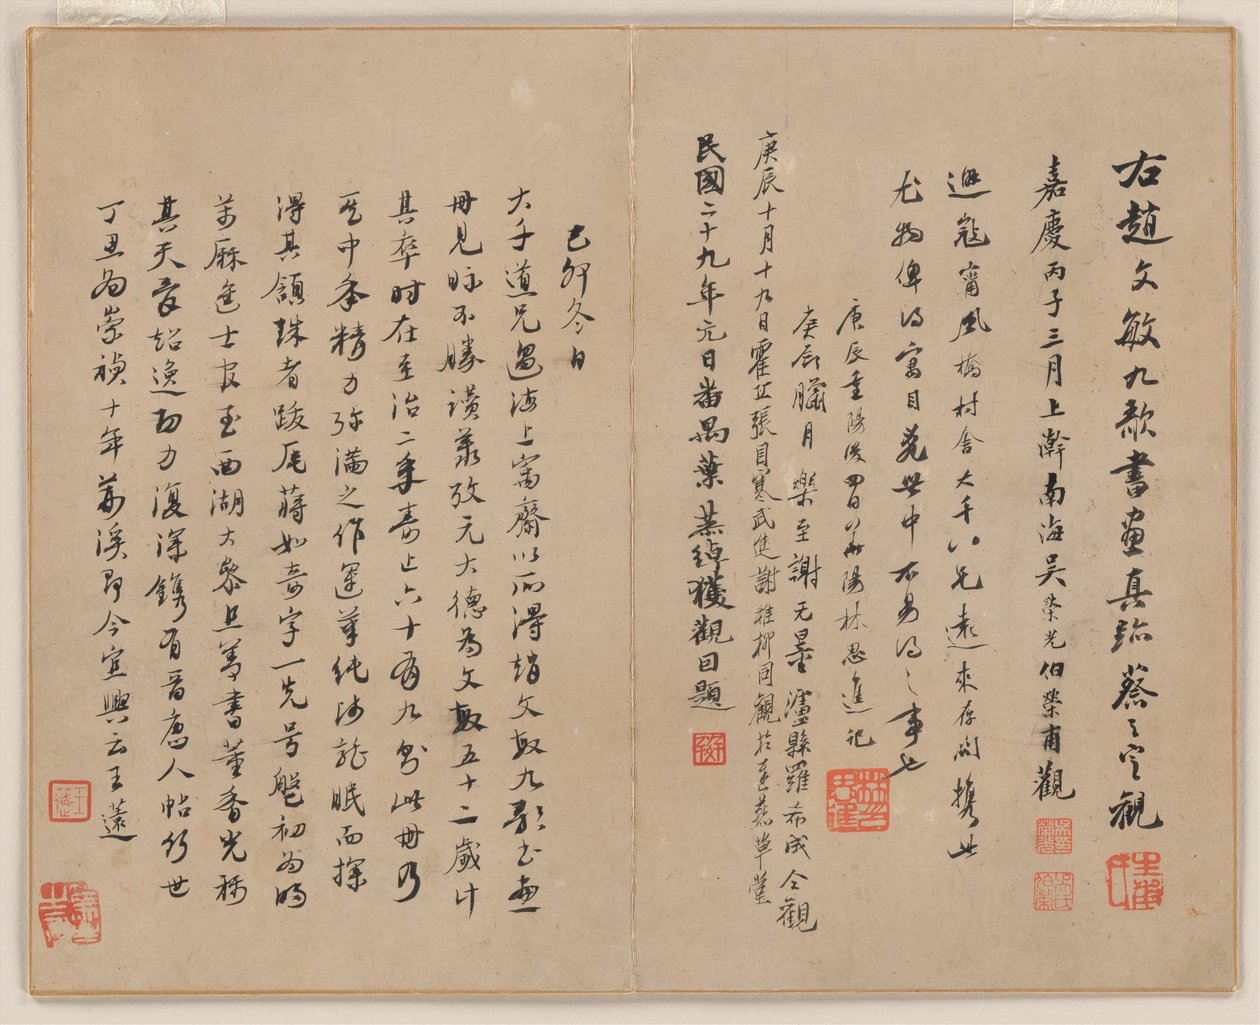 右趙文敏九歌書畫真跡蔡之定觀
嘉慶丙子三月上澣南海吳榮光伯榮甫觀
避寇甯風橋村舍大千八兄遠來存問攜此
尤物俾得寓目荒世中不易得之事也
庚辰重陽後四日華陽林思進記
庚辰臘月樂至謝无量瀘縣羅希成仝觀
庚辰十月十九日霍丘張目寒武進謝稚柳同觀於蓬萊草堂
民國二十九年元日番禺葉恭綽獲觀因題
己卯冬日
大千道兄過海上寓齋以所得趙文敏九歌書畫
冊見眎不勝讚羨攷元大德為文敏五十二歲计
其卒時在至治二年壽止六十有九則此冊乃
其中年精力弥滿之作運筆純淨龍眠而探
得其頷珠者跋尾蔣如奇字一先号盤初為明
萬厤進士官至西湖大參且善書董香光稱
其天資超逸功力復深鐫有晉唐人帖行世
丁丑為崇禎十年荊溪即今宜興云王薳